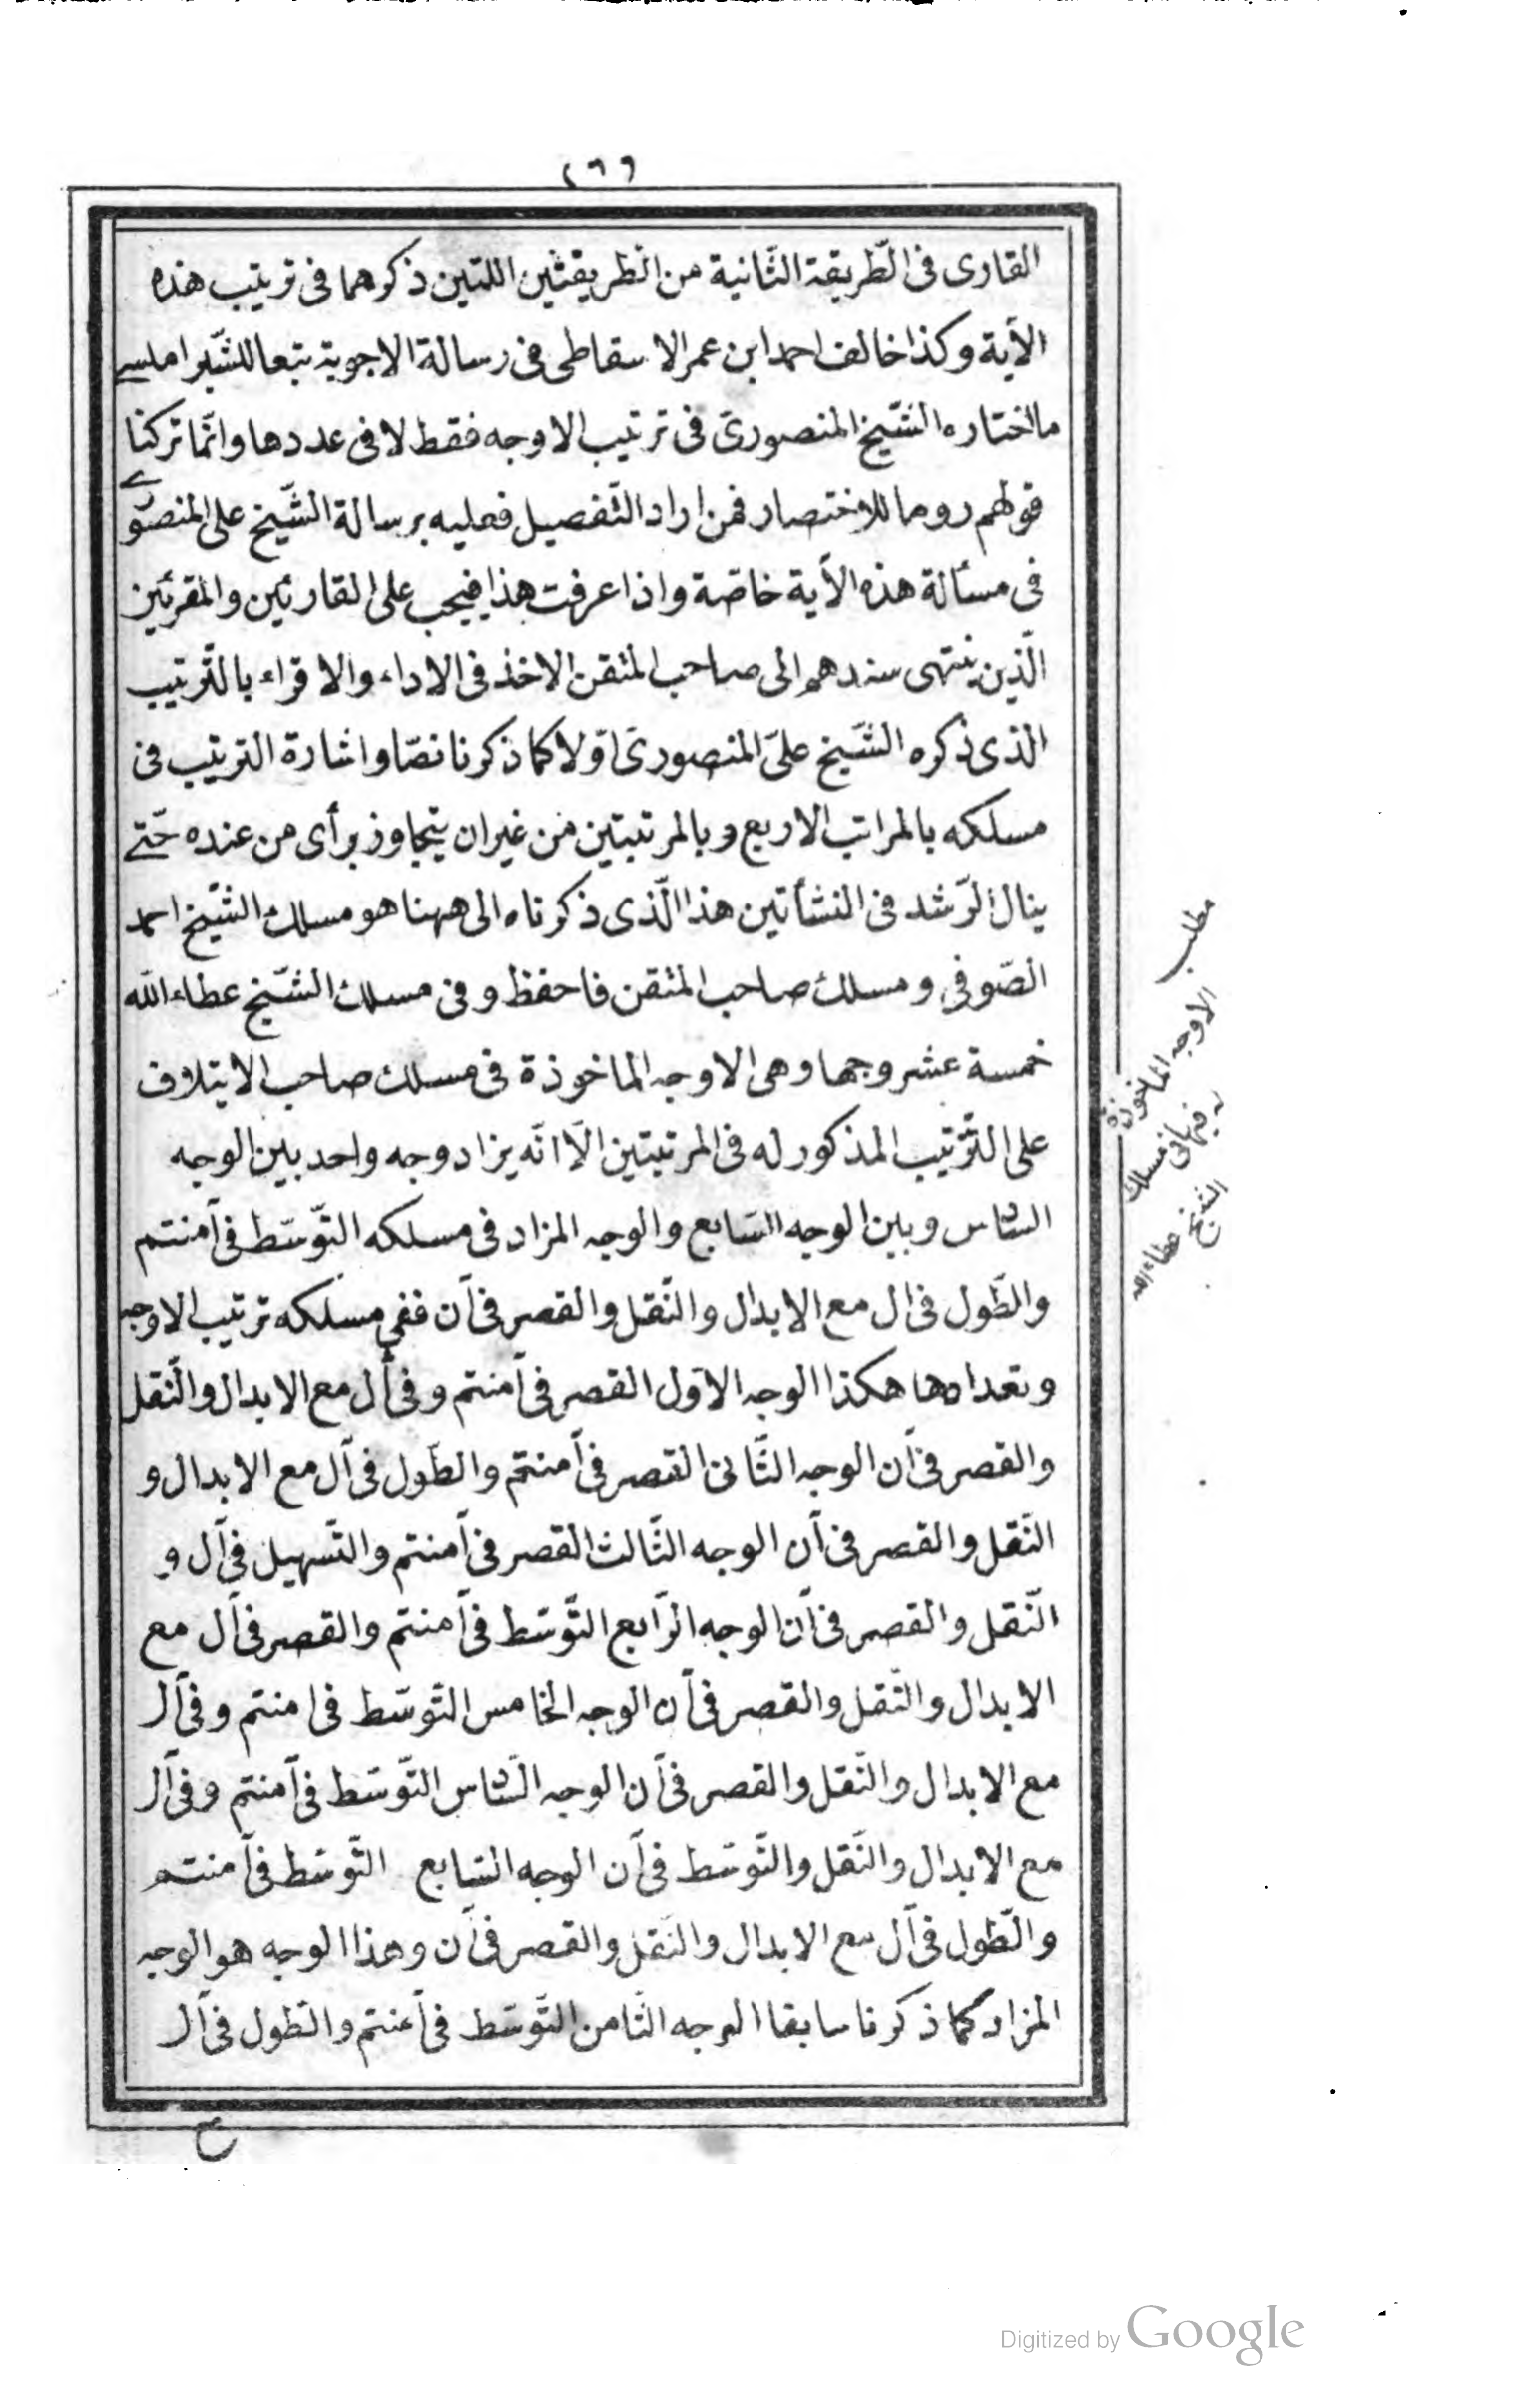 ٢٦٦
القارى فى الطّريقة الثّانية من الطريقتين اللتين ذكرهما فى ترتيب هذه
الآية وكذا خالف احمد ابن عمر الاسقاطى فى رسالة الاجوبة تبعا للشّبراملسى
ما اختاره الشّيخ المنصورىّ فى ترتيب الاوجه فقط لا فى عددها وانّما تركنا
قولهم روما للاختصار فمن اراد التّفصيل فعليه برسالة الشّيخ على المنصوّرى
فى مسألة هذه الآية خاصّة واذا عرفت هذا فيجب على القارئين والمقرئين
الّذين ينتهى سندهم الى صاحب المتقن الاخذ فى الاداء والاقراء بالتّرتيب
الذى ذكره الشّيخ علىّ المنصورىّ اوّلا كما ذكرنا نصّا واشارة الترتيب فى
مسلكه بالمراتب الاربع وبالمرتبتين من غير ان يتجاوز برأى من عنده حتّى
ينال الرّشد فى النشأتين هذا الّذى ذكرناه الى ههنا هو مسلك الشّيخ احمد
الصّوفى ومسلك صاحب المتقن فاحفظ وفى مسلك الشّيخ عطاء الله
خمسة عشر وجها وهى الاوجه الماخوذة فى مسلك صاحب الايتلاف
على التّرتيب المذكور له فى المرتبتين الّا انّه يزاد وجه واحد بين الوجه
السّادس وبين الوجه السّابع والوجه المزاد فى مسلكه التّوسّط فى آمنتم
والطّول فى ال مع الابدال والنّقل والقصر فى آن ففى مسلكه ترتيب الاوجه
وتعدادها هكذا الوجه الاوّل القصر فى آمنتم وفى آل مع الابدال والنّقل
والقصر فى آن الوجه الثّانى القصر فى آمنتم والطّول فى آل مع الابدال و
النّقل والقصر فى آن الوجه الثّالث القصر فى آمنتم والتّسهيل فى آل و
النّقل والقصر فى آن الوجه الرّابع التّوسّط فى آمنتم والقصر فى آل مع
الابدال والنّقل والقصر فى آن الوجه الخامس التّوسّط فى امنتم وفى آل
مع الابدال والنّقل والقصر فى آن الوجه السّادس التّوسّط فى آمنتم وفى آل
مع الابدال والنّقل والتّوسّط فى آن الوجه السّابع التّوسّط فى آمنتم
والطّول فى آل مع الابدال والنّقل والقصر فى آن وهذا الوجه هو الوجه
المزاد كما ذكرنا سابقا الوجه الثّامن التّوسّط فى آمنتم والطّول فى آل
مطلب
الاوجه الماخوذة
فيها فى مسلك
الشيخ عطاء الله
Digitized by Google